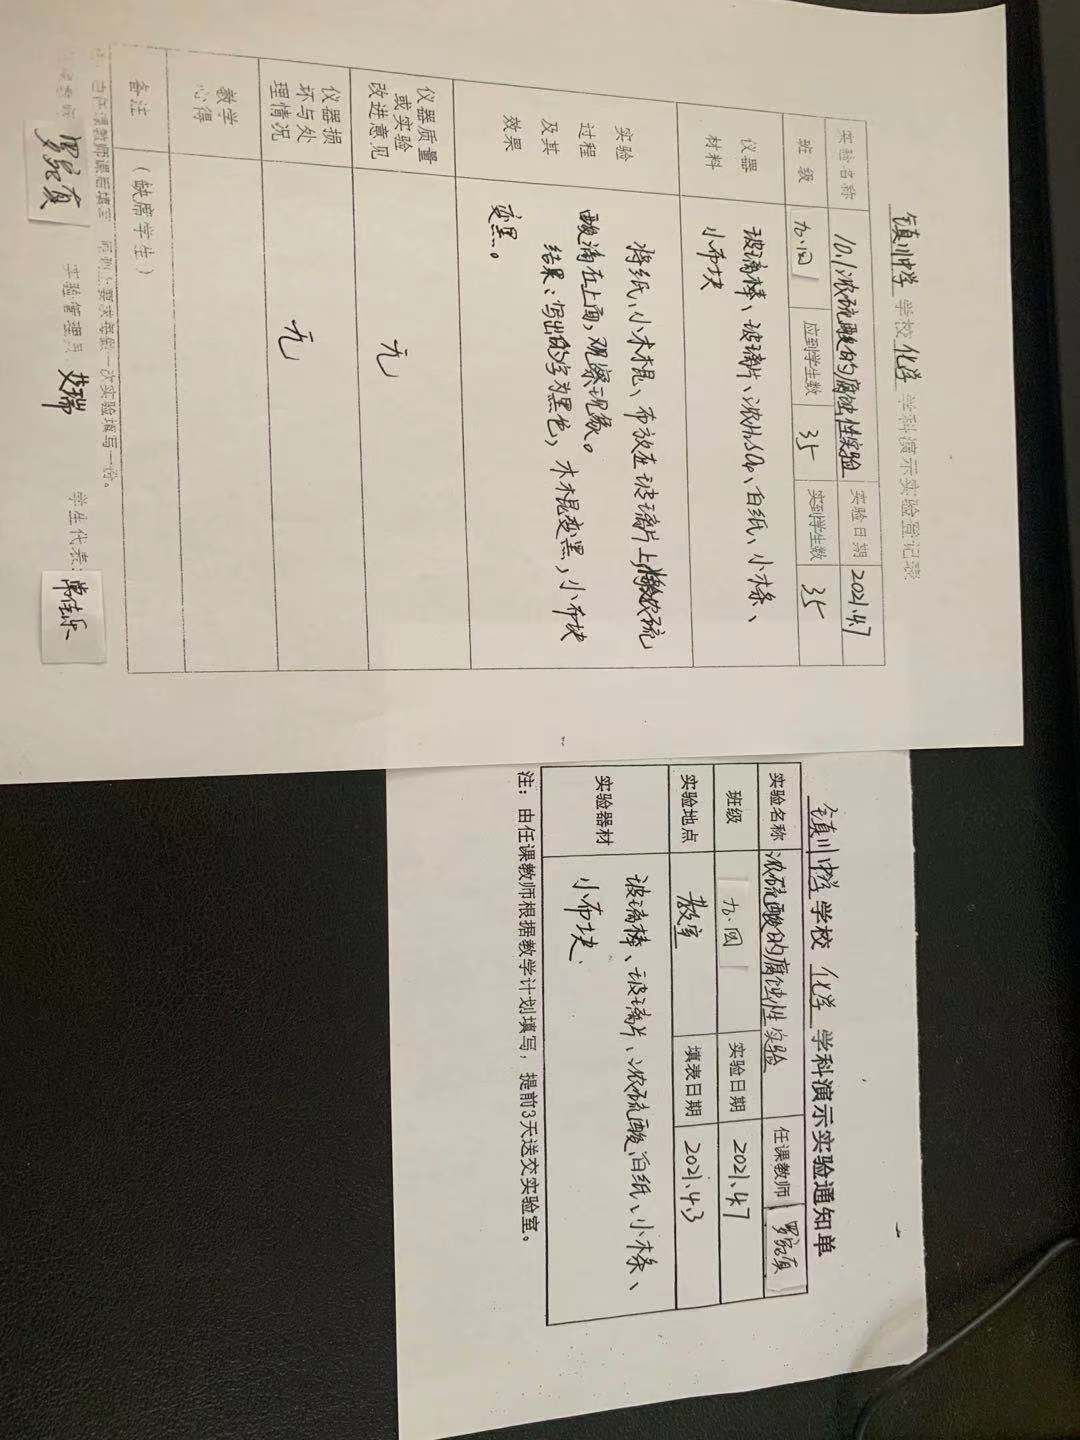 镇川中学 学校 化学 学科演示实验登记表
实验名称 10.1浓硫酸的腐蚀性实验 实验日期 2021.4.7
班级 九.四 应到学生数 35 实到学生数 35
仪器材料 玻璃棒、玻璃片、浓H₂SO₄、白纸、小木条、
小布块
实验过程及其效果 将纸、小木棍、布放在玻璃片上将浓硫
酸滴在上面,观察现象。
结果:写出的字为黑色,木棍变黑,小布块
变黑。
仪器质量或实验改进意见 无
仪器损坏与处理情况 无
教学心得
备注 (缺席学生)
注:由任课教师课后填写,原则上要求每做一次实验填写一份。
任课教师: 实验管理员:艾瑞 学生代表:
镇川中学 学校 化学 学科演示实验通知单
实验名称 浓硫酸的腐蚀性实验 任课教师
班级 九.四 实验日期 2021.4.7
实验地点 教室 填表日期 2021.4.3
实验器材 玻璃棒、玻璃片、浓硫酸、白纸、小木条、
小布块.
注:由任课教师根据教学计划填写,提前3天送交实验室。